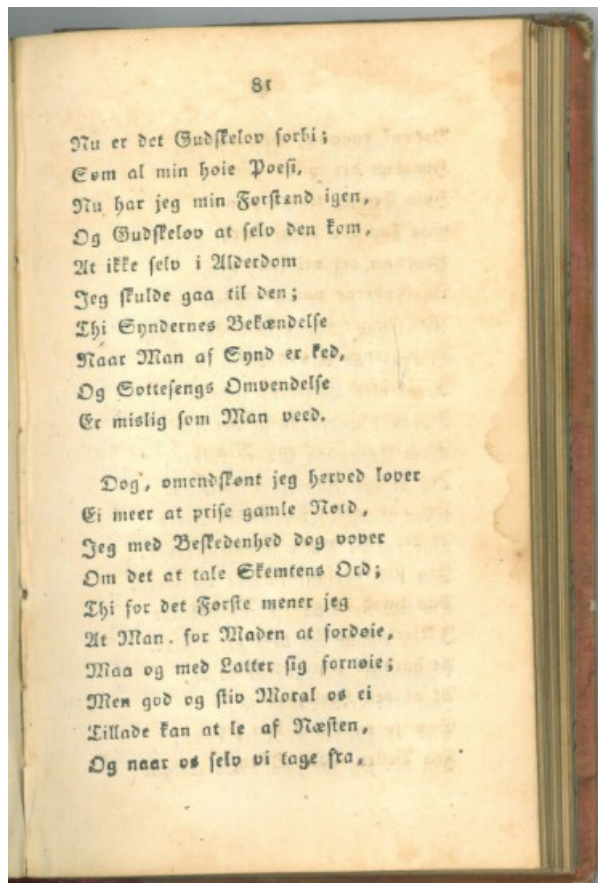 81
Nu er det Gudskelov forbi;
Som al min høie Poesi,
Nu har jeg min Forstand igen,
Og Gudskelov at selv den kom,
At ikke selv i Alderdom
Jeg skulde gaa til den;
Thi Syndernes Bekændelse
Naar Man af Synd er ked,
Og Sottesengs Omvendelse
Er mislig som Man veed.
Dog, omendskønt jeg herved lover
Ei meer at prise gamle Nord,
Jeg med Beskedenhed dog vover
Om det at tale Skemtens Ord;
Thi for det Første mener jeg
At Man. for Maden at fordøie,
Maa og med Latter sig fornøie;
Men god og stiv Moral os ei
Tillade kan at le af Næsten,
Og naar os selv vi tage fra,